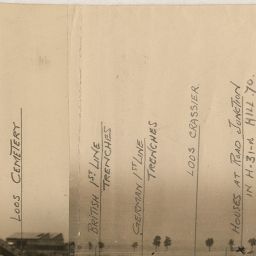 LOOS CEMETERY
BRITISH 1ST LINE
TRENCHES
GERMAN 1ST LINE
TRENCHES
LOOS CRASSIER.
HOUSES AT ROAD JUNCTION
IN H.31.d HILL 70.
X